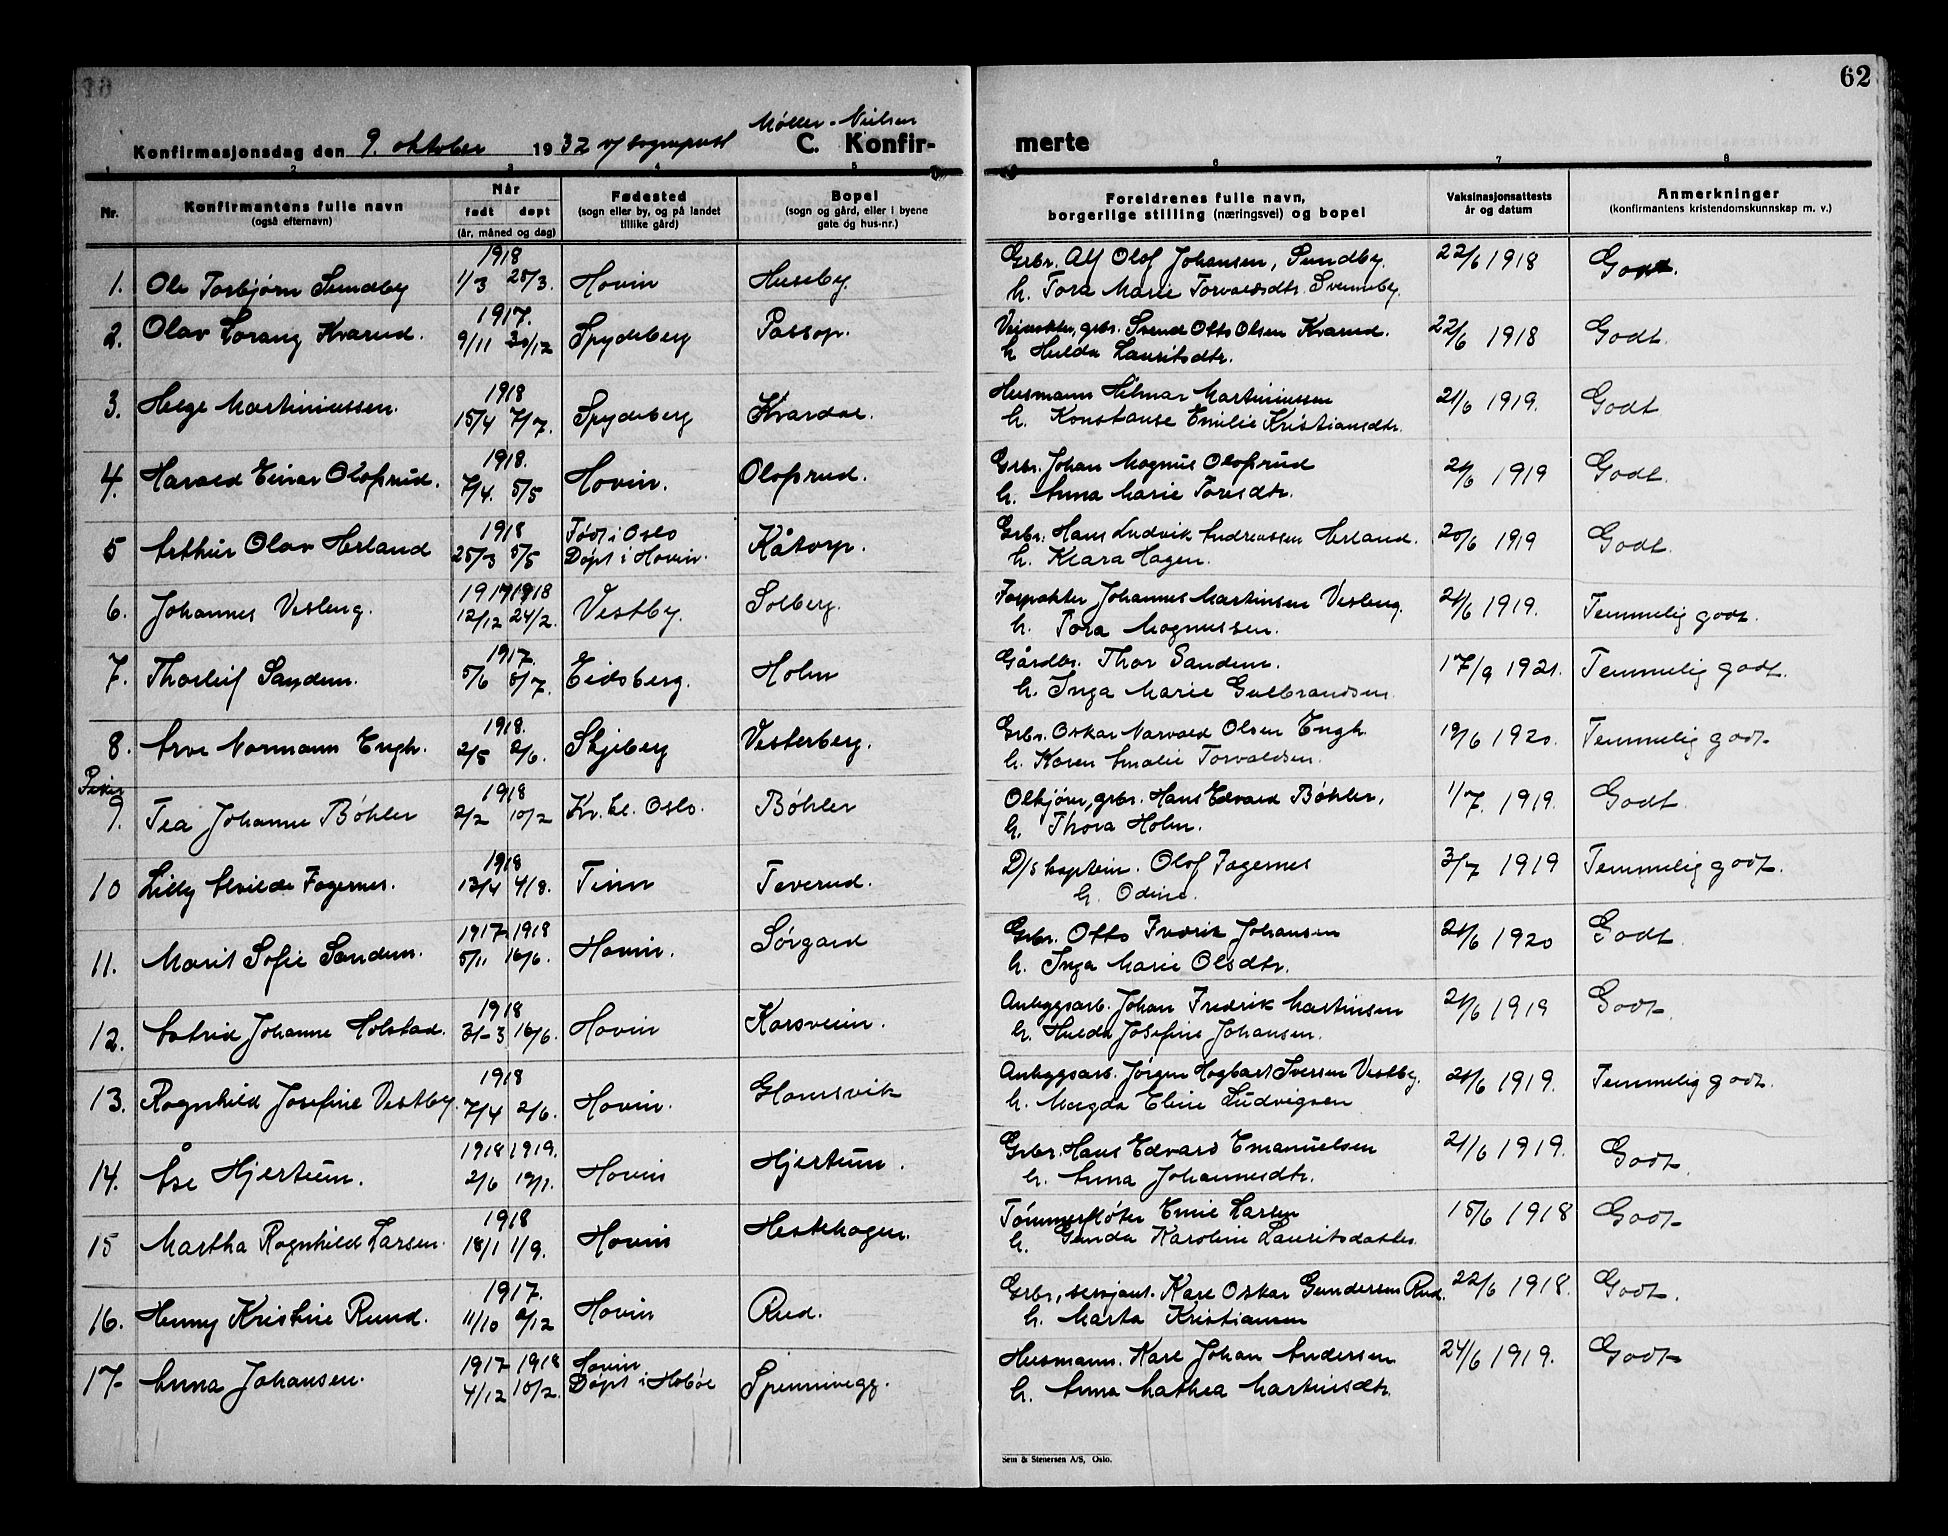 62
Møller-Nielsen
Konfirmasjonsdag den 9. oktober 1932 v/ sogneprest C. Konfir-
merte
1 2 3 4 5 6 7 8
Nr.
Konfirmantens fulle navn
(også efternavn)
Når
født døpt
(år, måned og dag)
Fødested
(sogn eller by, og på landet
tillike gård)
Bopel
(sogn og gård, eller i byene
gate og hus-nr.)
Foreldrenes fulle navn,
borgerlige stilling (næringsvei) og bopel
Vaksinasjonsattests
år og datum
Anmerkninger
(konfirmantens kristendomskunnskap m. v.)
1918
1. Ole Torbjørn Sundby 1/3 25/3. Hovin Huseby. Grbr. Alf Olof Johansen, Sundby. 22/6 1918 Godt.
h. Tora Marie Torvaldsdtr. Svenneby.
1917.
2. Olav Lorang Kvarud. 9/11 30/12 Spydeberg Passop. grbr. Svend Otto Olsen Kvarud. 22/6 1918 Godt.
h Hulda Lauritsdtr.
1918
3. Helge Martiniussen. 15/4 7/7. Spydeberg Husmann Hilmar Martiniussen 21/6 1919. Godt
h. Konstanse Emilie Kristiansdtr.
1918.
4. Harald Einar Olofsrud. 7/4. 5/5 Hovin. Olofsrud. Grbr. Johan Magnus Olofsrud 21/6 1919 Godt.
h. Anna Marie Toresdtr.
1918
5 Arthur Olav Herland 25/3 5/5 Født i Oslo Kåtorp. Grbr. Hans Ludvik Andreassen Herland. 20/6 1919 Godt.
Døpt i Hovin. h. Klara Hagen.
1917 1918
6. Johannes Vesleng. 12/12 24/2. Vestby. Solberg. Forpakter Johannes Martinsen Vesleng. 21/6 1919. Temmelig godt.
h. Tora Magnussen.
1917.
7. Thorleif Sandem. 5/6 8/7. Eidsberg. Holm Gårdbr. Thor Sandem. 17/9 1921. Temmelig godt.
h. Inga Marie Gulbrandsen.
1918.
8. Arve Normann Engh. 2/5 2/6. Skjeberg Vesterberg. Grbr. Oskar Narvald Olsen Engh. 19/6 1920. Temmelig godt.
h. Karen Amalie Torvaldsen.
Piker
1918
9. Tea Johanne Bøhler 2/2 10/2 Kr. Oslo. Bøhler grbr. Hans Edvard Bøhler, 1/7. 1919. Godt
h. Thora Holm.
1918
10 Lilly Alvilde Fagernes. 13/4 4/8. Tinn Teverud. D/s kaptein. Olof Fagernes 3/7 1919 Temmelig godt.
h. Odine.
1917 1918
11. Marit Sofie Sandem. 5/11 16/6. Hovin. Sørgard Grbr. Otto Fredrik Johansen 21/6 1920 Godt.
h. Inga Marie Olsdtr.
1918
12. Astrid Johanne Holstad. 31-3 16/6. Hovin Korsveien. Anleggsarb. Johan Fredrik Martinsen 21/6 1919 Godt.
h. Hulda Josefine Johansen.
1918
13. Ragnhild Josefine Vestby. 7/4 2/6. Hovin. Glomsvik Anleggsarb. Jørgen Hagbart Iversen Vestby. 21/6 1919. Temmelig godt.
h. Magda Eline Ludvigsen
1918 1919.
14. Åse Hjerteun. 2/6 19/1. Hovin Hjerteun. Grbr. Hans Edvard Emanuelsen 21/6 1919. Godt.
h. Anna Johannesdtr.
1918
15 Martha Ragnhild Larsen. 18/1 1/9. Hovin Hestehagen. Tømmerfløter Emil Larsen 15/6 1918 Godt
h. Gunda Karoline Lauritsdatter
1917.
16. Henny Kristine Ruud. 11/10 9/12 Hovin Rud. Grbr, sersjant. Karl Oskar Gundersen Rud. 22/6 1918. Godt.
h. Marta Kristiansen
1917 1918 Hovin
17 Anna Johansen. 4/12 10/2. Døpt i Hobøl Spinnivegg. Husmann. Karl Johan Andersen 24/6 1919. Godt
h. Anna Mathea Martinsdtr.
Sem & Stenersen A/S, Oslo.